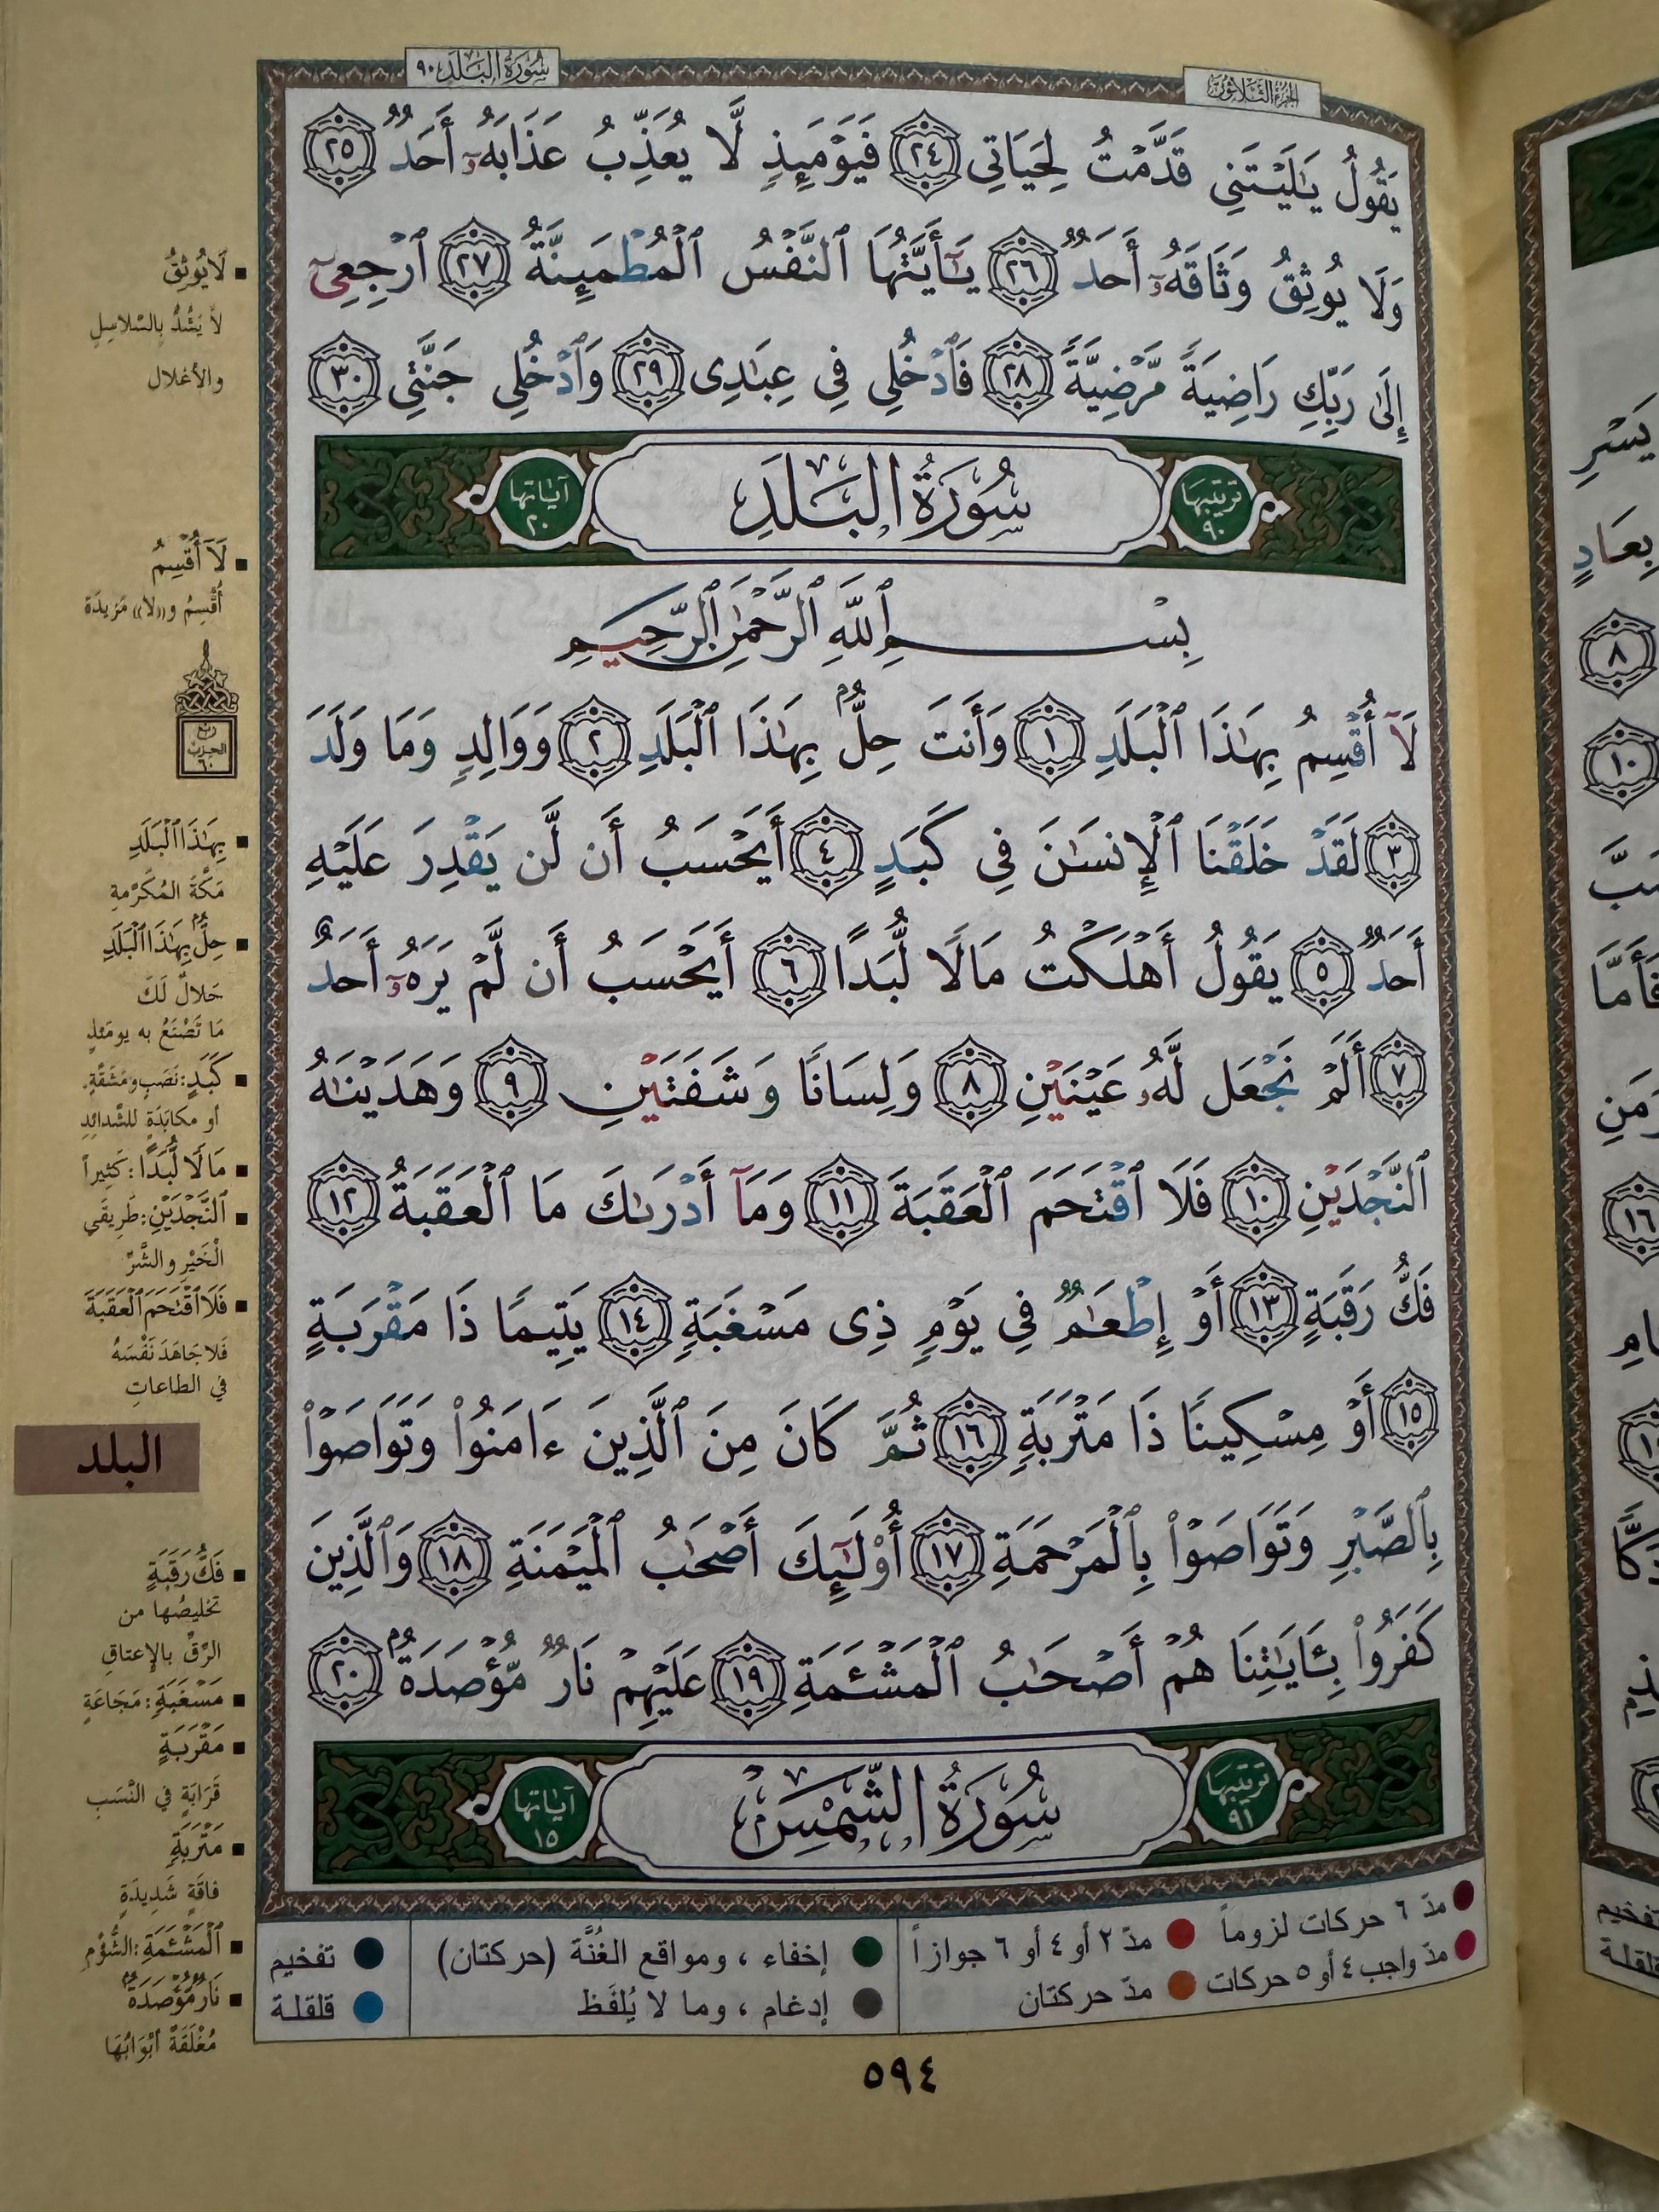 سُورَةُ البَلَد ٩٠
الجزء الثلاثون
يَقُولُ يَٰلَيْتَنِى قَدَّمْتُ لِحَيَاتِى ٢٤ فَيَوْمَئِذٍ لَّا يُعَذِّبُ عَذَابَهُۥٓ أَحَدٌ ٢٥
وَلَا يُوثِقُ وَثَاقَهُۥٓ أَحَدٌ ٢٦ يَٰٓأَيَّتُهَا ٱلنَّفْسُ ٱلْمُطْمَئِنَّةُ ٢٧ ٱرْجِعِىٓ
إِلَىٰ رَبِّكِ رَاضِيَةً مَّرْضِيَّةً ٢٨ فَٱدْخُلِى فِى عِبَٰدِى ٢٩ وَٱدْخُلِى جَنَّتِى ٣٠
ترتيبها ٩٠ سُورَةُ البَلَدِ آياتها ٢٠
بِسْمِ ٱللَّهِ ٱلرَّحْمَٰنِ ٱلرَّحِيمِ
لَآ أُقْسِمُ بِهَٰذَا ٱلْبَلَدِ ١ وَأَنتَ حِلٌّۢ بِهَٰذَا ٱلْبَلَدِ ٢ وَوَالِدٍ وَمَا وَلَدَ
٣ لَقَدْ خَلَقْنَا ٱلْإِنسَٰنَ فِى كَبَدٍ ٤ أَيَحْسَبُ أَن لَّن يَقْدِرَ عَلَيْهِ
أَحَدٌ ٥ يَقُولُ أَهْلَكْتُ مَالًا لُّبَدًا ٦ أَيَحْسَبُ أَن لَّمْ يَرَهُۥٓ أَحَدٌ
٧ أَلَمْ نَجْعَل لَّهُۥ عَيْنَيْنِ ٨ وَلِسَانًا وَشَفَتَيْنِ ٩ وَهَدَيْنَٰهُ
ٱلنَّجْدَيْنِ ١٠ فَلَا ٱقْتَحَمَ ٱلْعَقَبَةَ ١١ وَمَآ أَدْرَىٰكَ مَا ٱلْعَقَبَةُ ١٢
فَكُّ رَقَبَةٍ ١٣ أَوْ إِطْعَٰمٌ فِى يَوْمٍ ذِى مَسْغَبَةٍ ١٤ يَتِيمًا ذَا مَقْرَبَةٍ
١٥ أَوْ مِسْكِينًا ذَا مَتْرَبَةٍ ١٦ ثُمَّ كَانَ مِنَ ٱلَّذِينَ ءَامَنُوا۟ وَتَوَاصَوْا۟
بِٱلصَّبْرِ وَتَوَاصَوْا۟ بِٱلْمَرْحَمَةِ ١٧ أُو۟لَٰٓئِكَ أَصْحَٰبُ ٱلْمَيْمَنَةِ ١٨ وَٱلَّذِينَ
كَفَرُوا۟ بِـَٔايَٰتِنَا هُمْ أَصْحَٰبُ ٱلْمَشْـَٔمَةِ ١٩ عَلَيْهِمْ نَارٌ مُّؤْصَدَةٌۢ ٢٠
ترتيبها ٩١ سُورَةُ الشَّمْسِ آياتها ١٥
مدّ ٦ حركات لزوماً
مدّ ٢ أو ٤ أو ٦ جوازاً
إخفاء ، ومواقع الغُنَّة (حركتان)
تفخيم
مدّ واجب ٤ أو ٥ حركات
مدّ حركتان
إدغام ، وما لا يُلفَظ
قلقلة
٥٩٤
لَا يُوثِقُ
لا يَشُدُّ بِالسّلاسِلِ
والأغلال
لَآ أُقْسِمُ
أُقْسِمُ و«لا» مَزيدَة
ربع
الحزب
٦٠
بِهَٰذَا ٱلْبَلَدِ
مَكَّةَ المُكَرَّمةِ
حِلٌّۢ بِهَٰذَا ٱلْبَلَدِ
حَلالٌ لَكَ
مَا تَصْنَعُ به يومَئذٍ
كَبَدٍ: نَصَبٍ ومَشَقَّةٍ.
أو مكابَدَةٍ للشَّدائِدِ
مَالًا لُّبَدًا: كَثيراً
ٱلنَّجْدَيْنِ: طَرِيقَي
الْخَيْرِ والشَّرِّ
فَلَا ٱقْتَحَمَ ٱلْعَقَبَةَ
فَلا جَاهَدَ نَفْسَهُ
في الطاعاتِ
البلد
فَكُّ رَقَبَةٍ
تخليصُها من
الرِّقِّ بالإعتاقِ
مَسْغَبَةٍ: مَجَاعَةٍ
مَقْرَبَةٍ
قَرَابَةٍ في النَّسَبِ
مَتْرَبَةٍ
فاقَةٍ شَدِيدَةٍ
ٱلْمَشْـَٔمَةِ: الشُّؤْمِ
نَارٌ مُّؤْصَدَةٌۢ
مُغْلَقَةٌ أَبْوَابُهَا
يَسْرِ
بِعَادٍ
٨
١٠
١٦
تفخيم
قلقلة